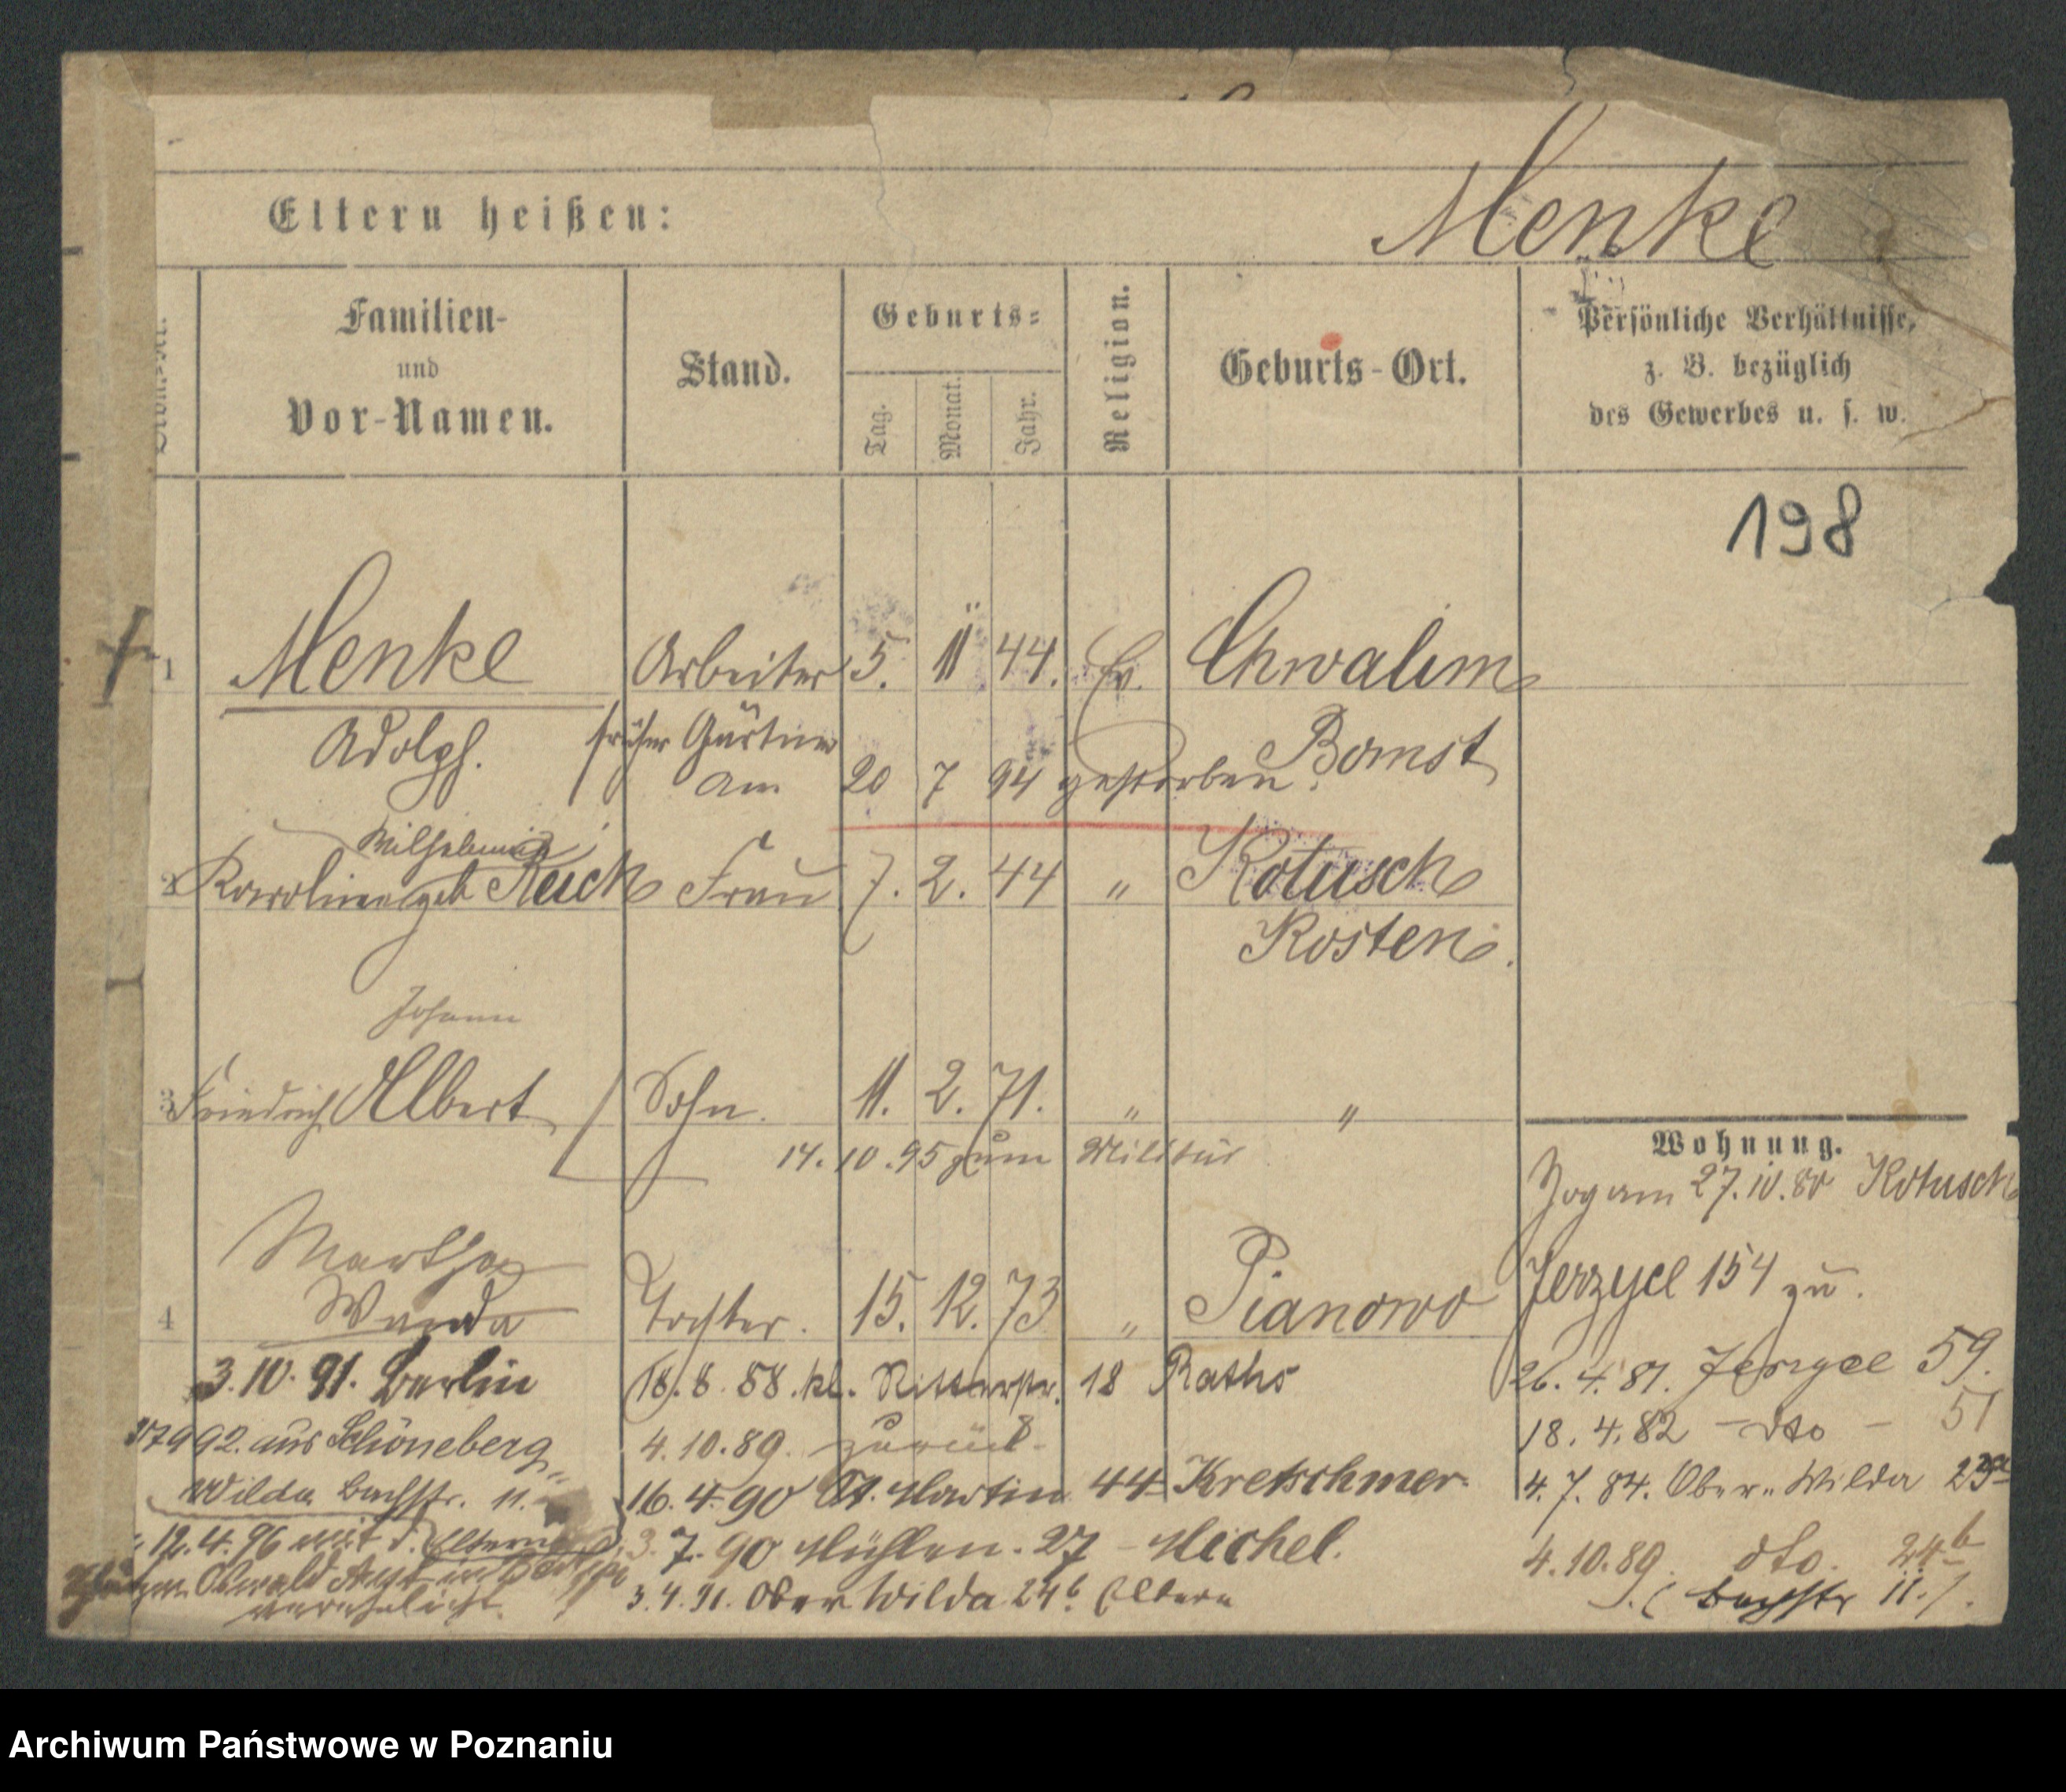 Menke
Eltern heißen:
Familien- und Vor-Namen.
Stand.
Geburts-
Tag.
Monat.
Jahr.
Religion.
Geburts-Ort.
Persönliche Verhältnisse, z. B. bezüglich des Gewerbes u. s. w.
198
1 Menke Arbeiter 5. 11 44. Ev. Chwalim
Adolph. früher Gärtner Bomst
am 20 7 94 gestorben.
Wilhelmine
2 Karoline geb Reich Frau 7. 2. 44 " Kotusch
Kosten.
Johann
3 Friedrich Albert Sohn. 11. 2. 71. " "
14. 10. 95 zum Militär
Wohnung.
Zog am 27. 10. 80 Kotusch
Jerzyce 154 zu.
Martha
4 Wanda Tochter. 15. 12. 73 " Pianowo
3. 10. 91. Berlin 18. 8. 88. kl. Ritterstr. 18 Raths
26. 4. 81. Jerzyce 59.
92. aus Schöneberg 4. 10. 89. zurück
18. 4. 82 - dto - 51
Wilda Bachstr. 11. 16. 4. 90 St. Martin 44 Kretschmer.
4. 7. 84. Ober-Wilda
12. 4. 96 mit d. Eltern 3. 7. 90 Mühlen. 27 - Michel.
4. 10. 89. dto. 24b
verehelicht. 3. 4. 91. Ober Wilda 24b. Eltern
(Bachstr 11.)
Archiwum Państwowe w Poznaniu